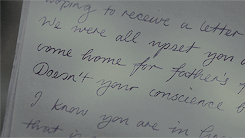 hoping to receive a letter
We were all upset you d
come home for father's f
Doesn't your conscience b
I know you are in
that